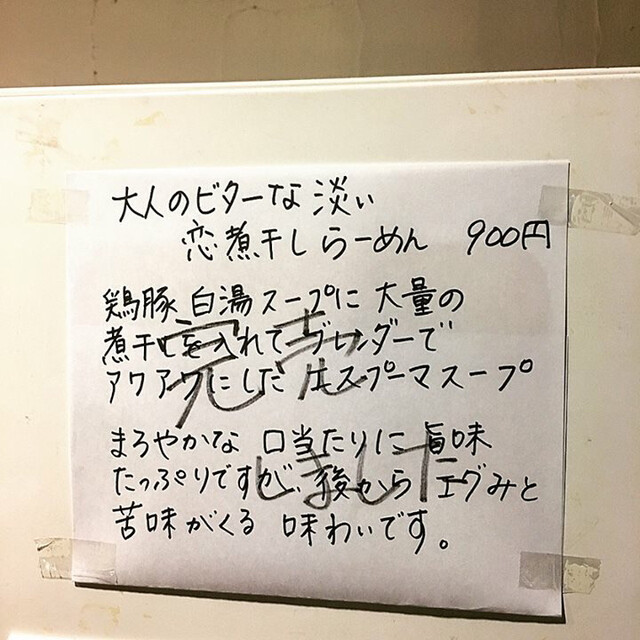 大人のビターな淡い
恋煮干しらーめん 900円
鶏豚白湯スープに大量の
煮干しを入れてブレンダーで
アワアワにしたエスプーマスープ
まろやかな口当たりに旨味
たっぷりですが、後からエグみと
苦味がくる味わいです。
完売
しました